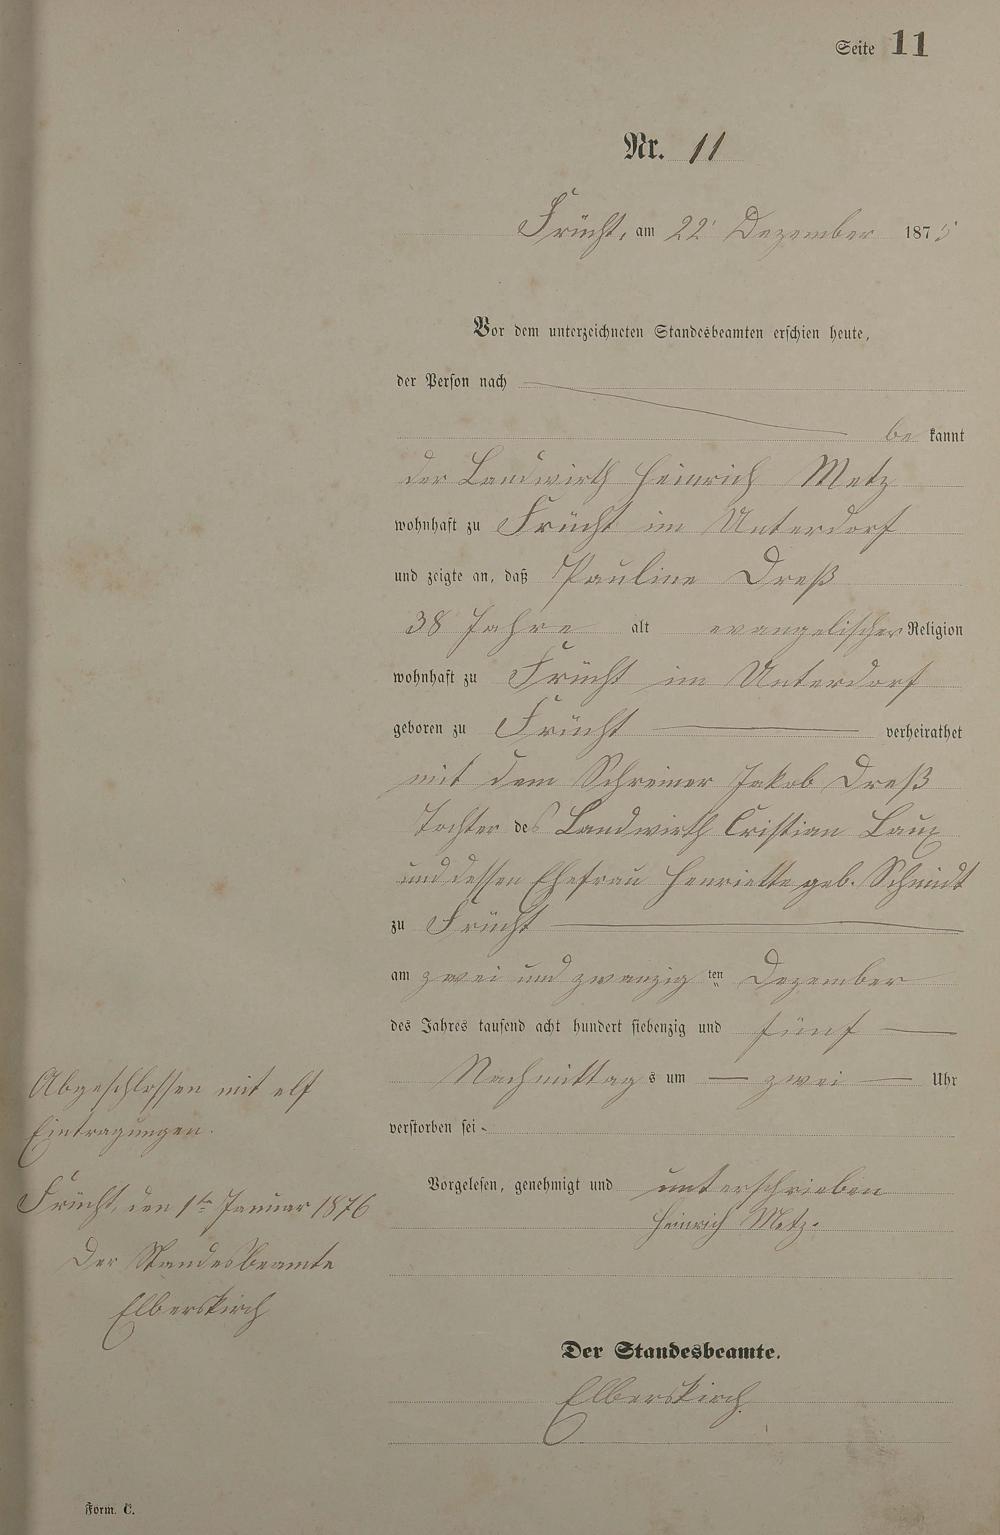 Seite 11
Nr. 11
Frücht, am 22' Dezember 1875
Vor dem unterzeichneten Standesbeamten erschien heute,
der Person nach
be kannt
der Landwirth Heinrich Metz
wohnhaft zu Frücht im Unterdorf
und zeigte an, daß Pauline Dreß
38 Jahre alt evangelischer Religion
wohnhaft zu Frücht im Unterdorf
geboren zu Frücht verheirathet
mit dem Schreiner Jakob Dreß
Tochter des Landwirth Cristian Laux
und dessen Ehefrau Henriette geb. Schmidt
zu Frücht
am zwei und zwanzig ten Dezember
des Jahres tausend acht hundert siebenzig und fünf
Nachmittags um zwei Uhr
verstorben sei.
Vorgelesen, genehmigt und unterschrieben
Heinrich Metz.
Der Standesbeamte.
Elberskirch
Abgeschlossen mit elf
Eintragungen.
Frücht, den 1te Januar 1876
Der Standesbeamte
Elberskirch
Form. C.